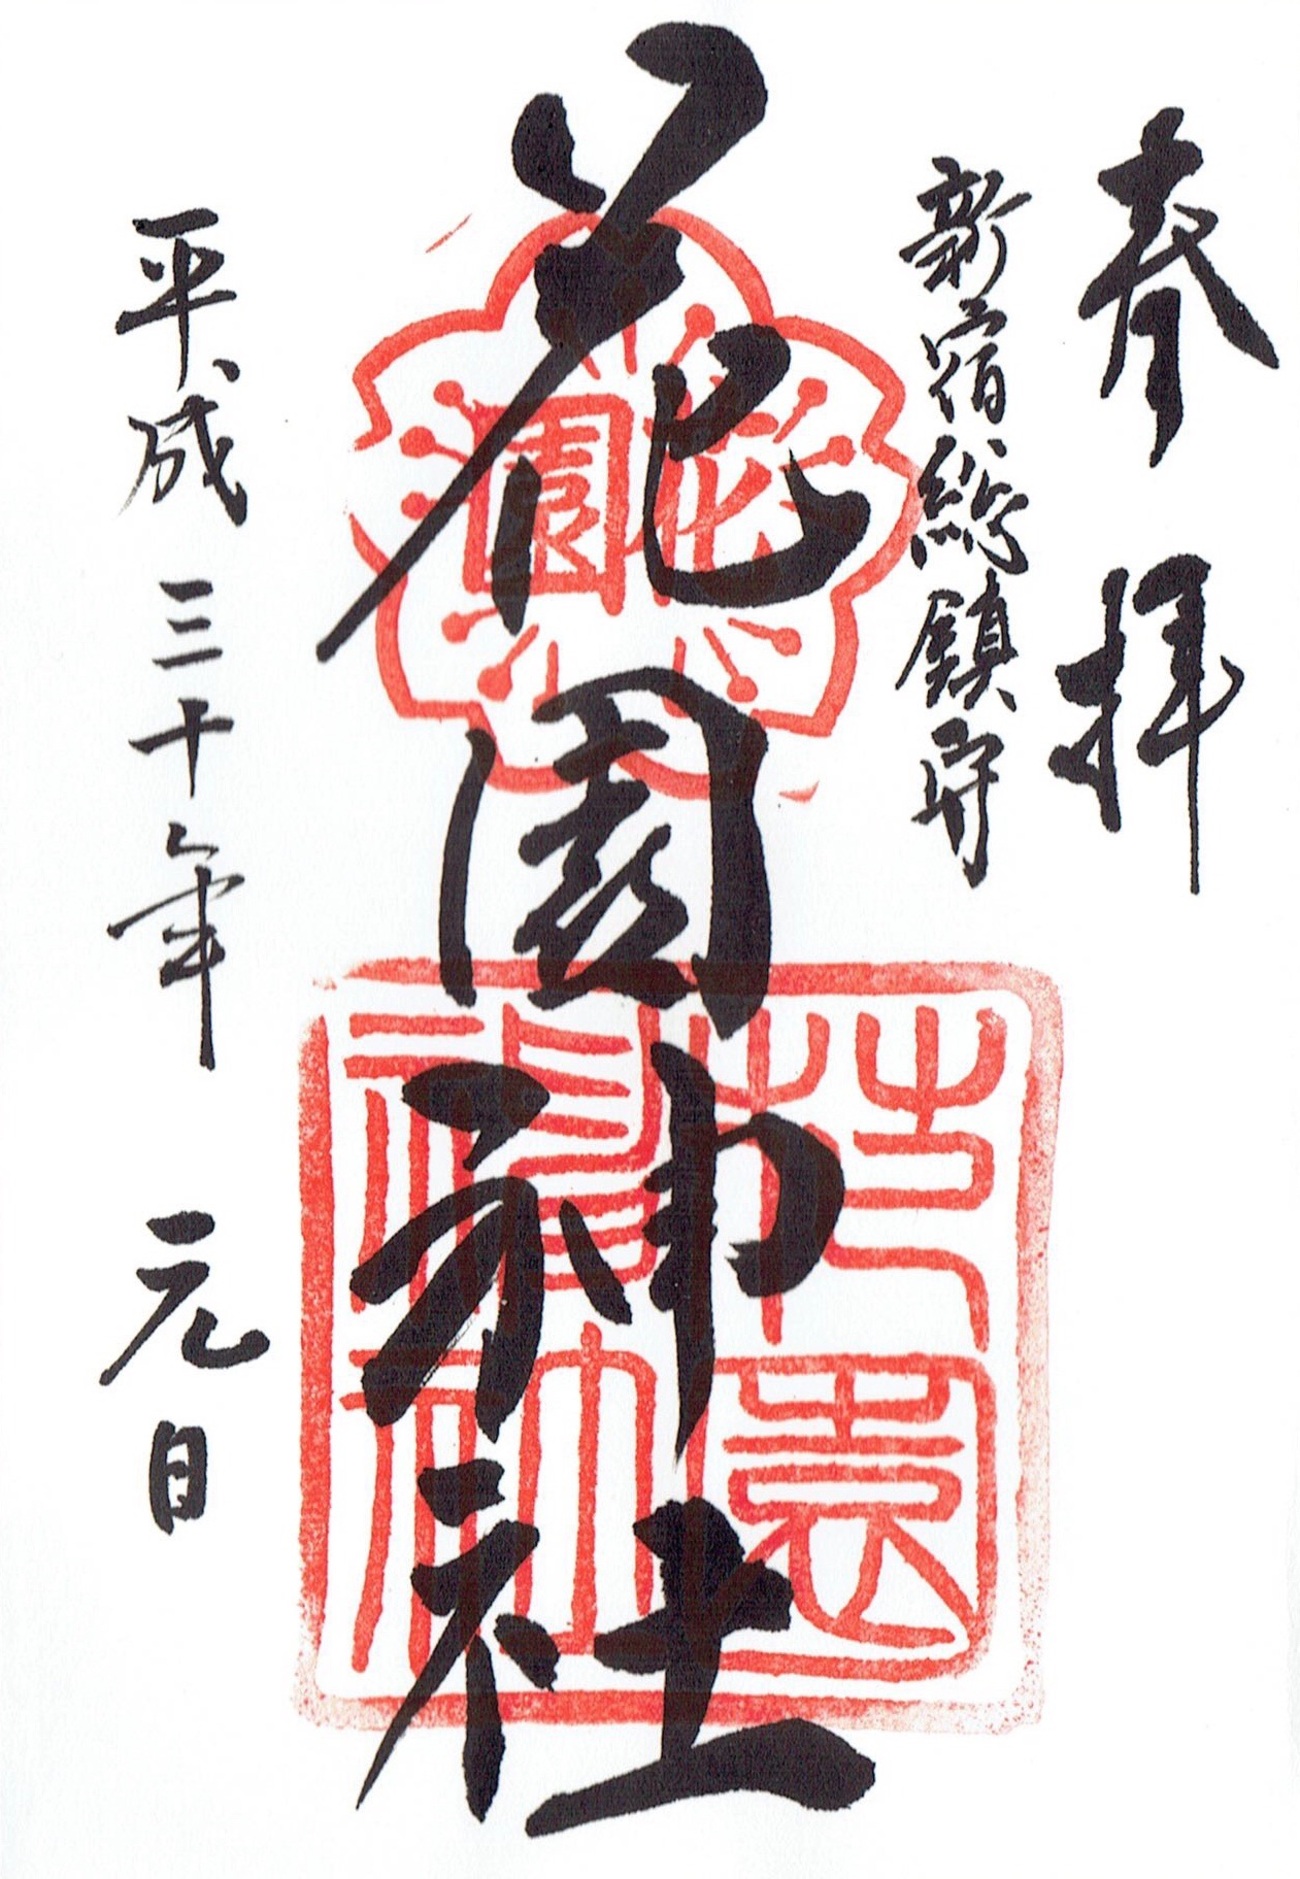 奉拝
新宿総鎮守
花園神社
花園
花園神社
平成三十年 元日